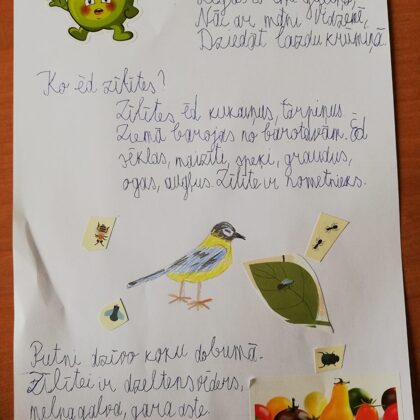 Nāc ar mani Vidzemē,
Dziedāt lazdu krūmiņā.
Ko ēd zīlītes?
Zīlītes ēd kukaiņus, tārpiņus.
Ziemā barojas no barotavām. Ēd
sēklas, maizīti, speķi, graudus,
ogas, augļus. Zīlīte ir nometnieks.
Putni dzīvo koku dobumā.
Zīlītei ir dzeltens vēders,
melna galva, gara aste.